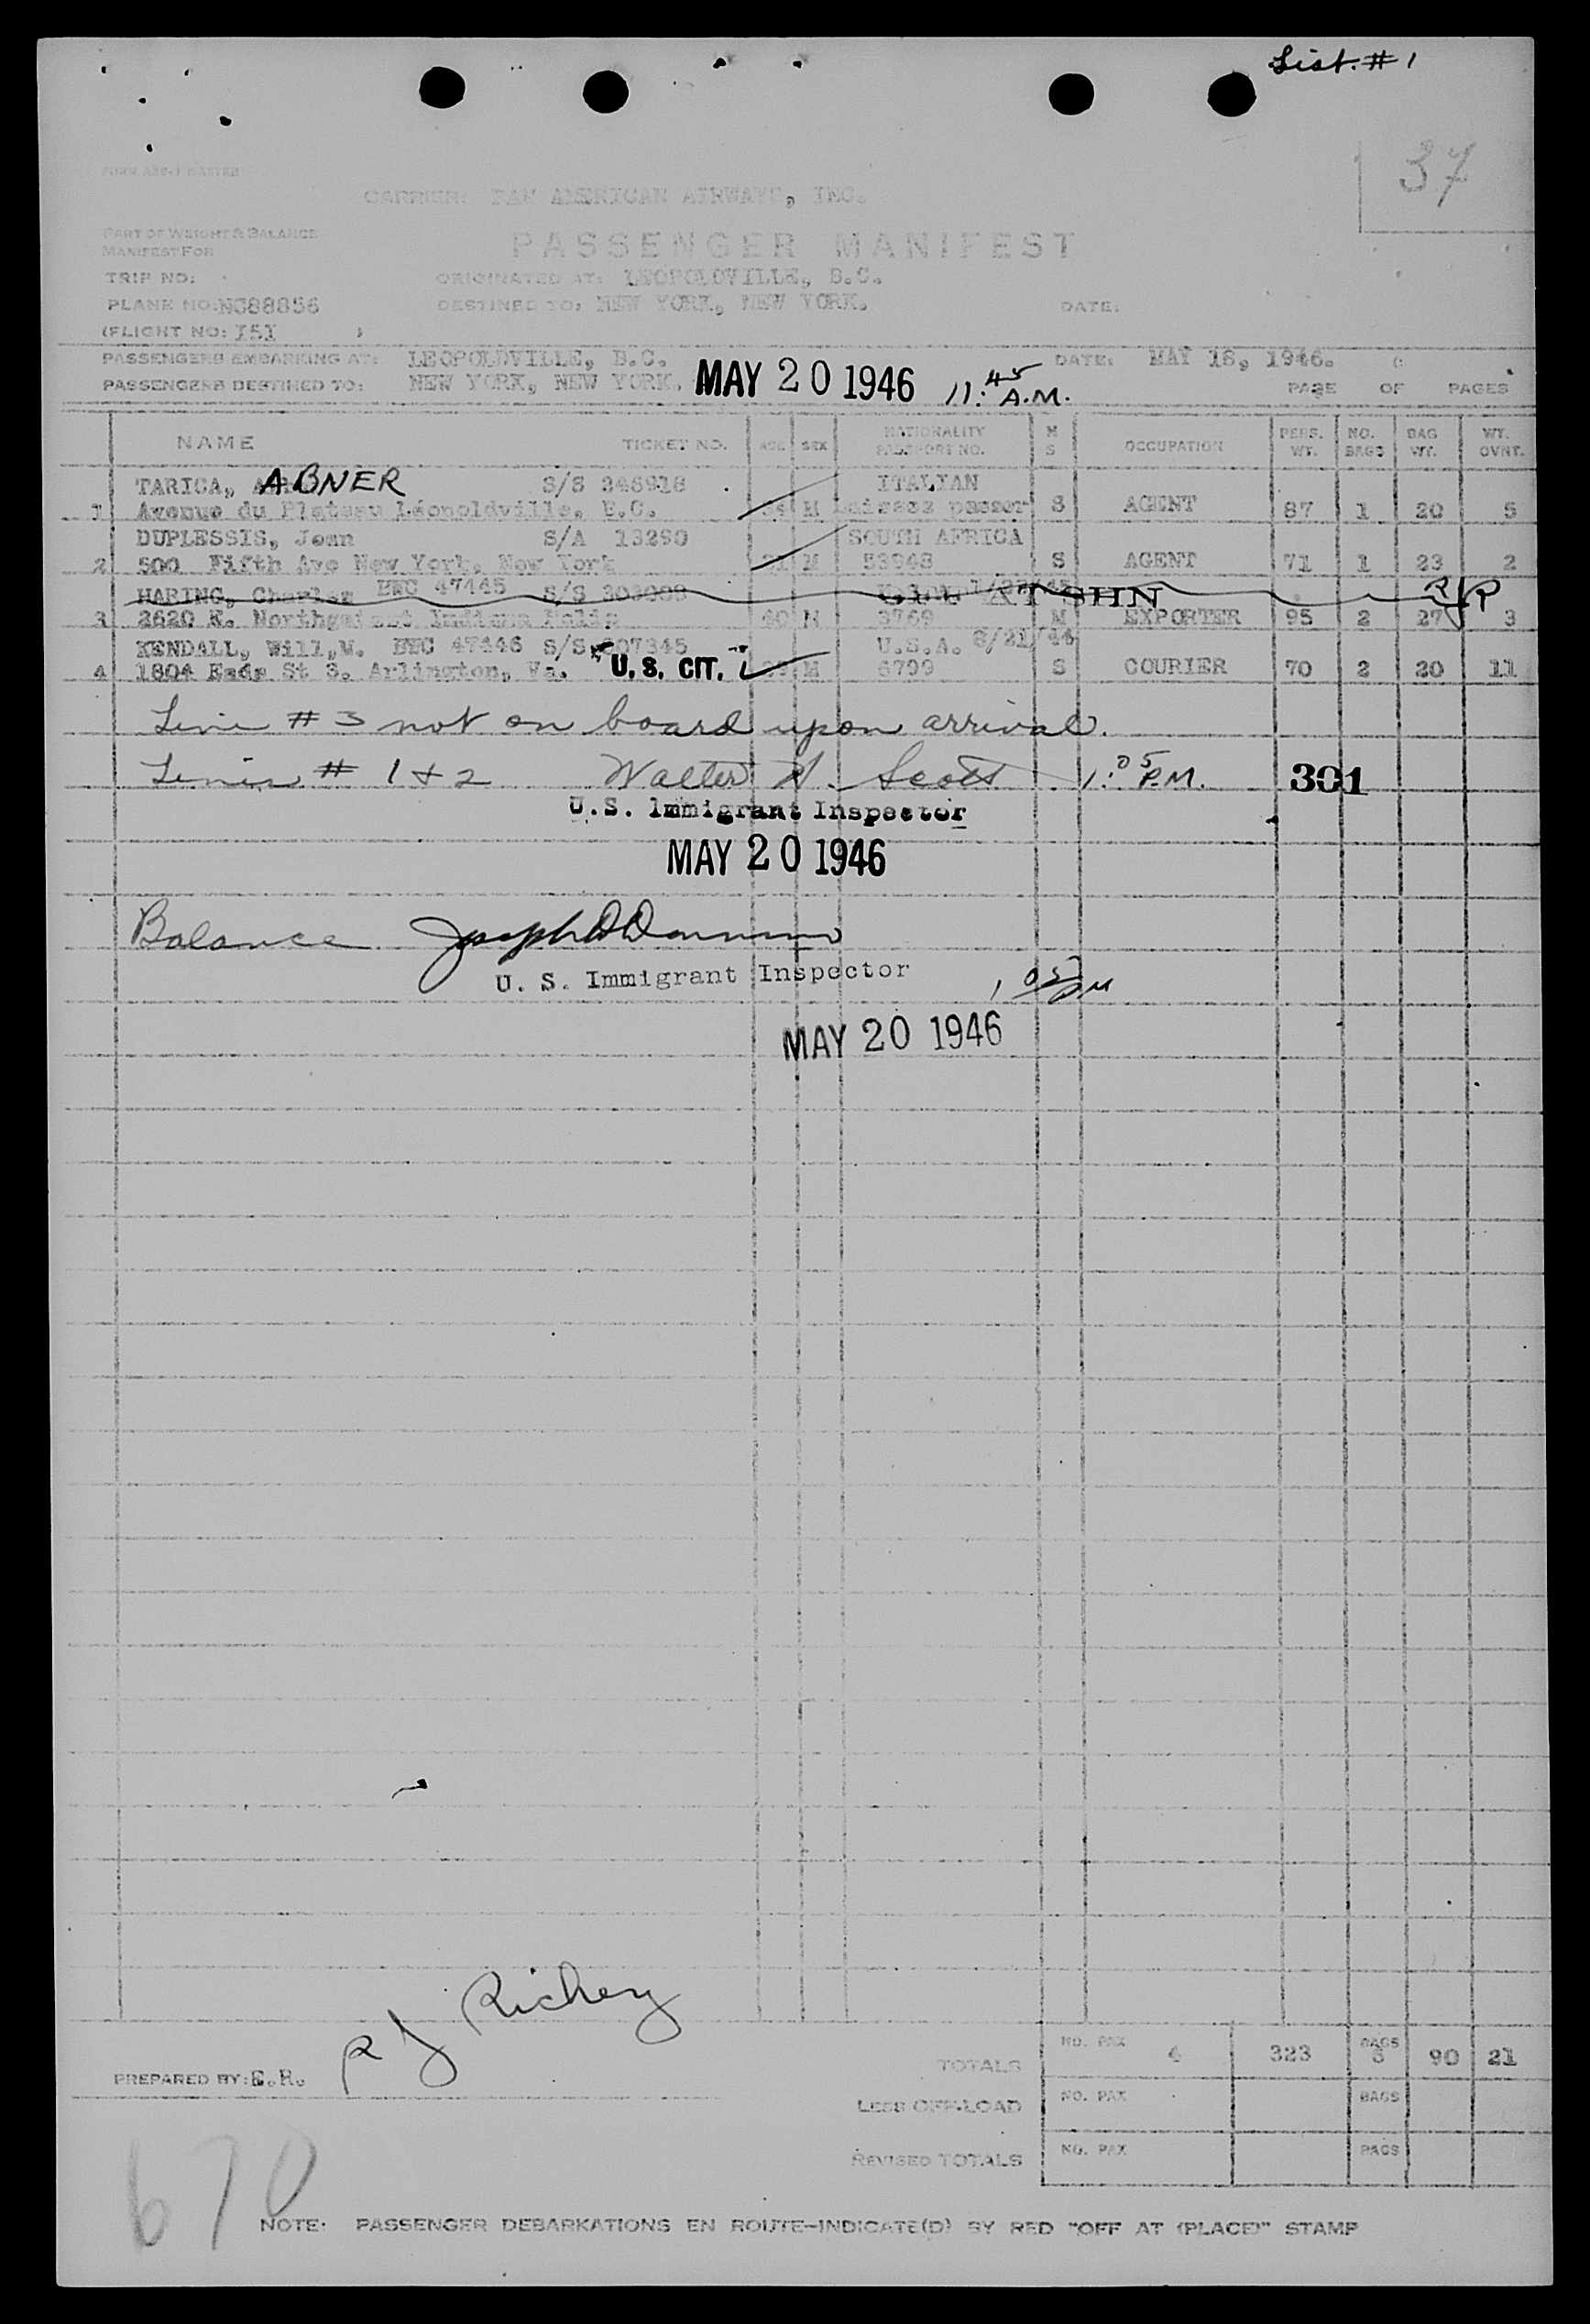 List. # 1
37
CARRIER: PAN AMERICAN AIRWAYS, INC.
PART OF WEIGHT & BALANCE
MANIFEST FOR
PASSENGER MANIFEST
TRIP NO:
ORIGINATED AT: LEOPOLDVILLE, B.C.
PLANE NO: NC88856
DESTINED TO: NEW YORK, NEW YORK.
DATE:
(FLIGHT NO: 151 )
PASSENGERS EMBARKING AT: LEOPOLDVILLE, B.C.
DATE: MAY 18, 1946.
PASSENGERS DESTINED TO: NEW YORK, NEW YORK.
MAY 20 1946 11:45 A.M.
PAGE OF PAGES
NAME TICKET NO. AGE SEX NATIONALITY PASSPORT NO. M S OCCUPATION PERS. WT. NO. BAGS BAG WT. WT. OVNT.
TARICA, ABNER S/S 346918 ITALIAN
1 Avenue du Plateau Léopoldville, B.C. M Laissez passer S AGENT 87 1 20 5
DUPLESSIS, Jean S/A 13290 SOUTH AFRICA
2 500 Fifth Ave New York, New York M 53948 S AGENT 71 1 23 2
HARING, Charles EWC 47445 S/S
3 2620 E. 40 M 3769 M EXPORTER 95 2 27 3
AT SHN
KENDALL, Will,W. EWC 47446 S/S 607345 U.S.A. 8/21/44
4 1804 Eads St S. Arlington, Va. U.S. CIT. M 6799 S COURIER 70 2 20 11
Line # 3 not on board upon arrival.
Lines # 1 & 2 Walter H. Scott 1:05 P.M. 301
U.S. Immigrant Inspector
MAY 20 1946
Balance
U. S. Immigrant Inspector
1 05 PM
MAY 20 1946
R J Richey
PREPARED BY: E.R.
TOTALS NO. PAX 4 323 BAGS 6 90 21
LESS OFF-LOAD NO. PAX BAGS
REVISED TOTALS NO. PAX BAGS
670
NOTE: PASSENGER DEBARKATIONS EN ROUTE-INDICATE(D) BY RED "OFF AT (PLACE)" STAMP